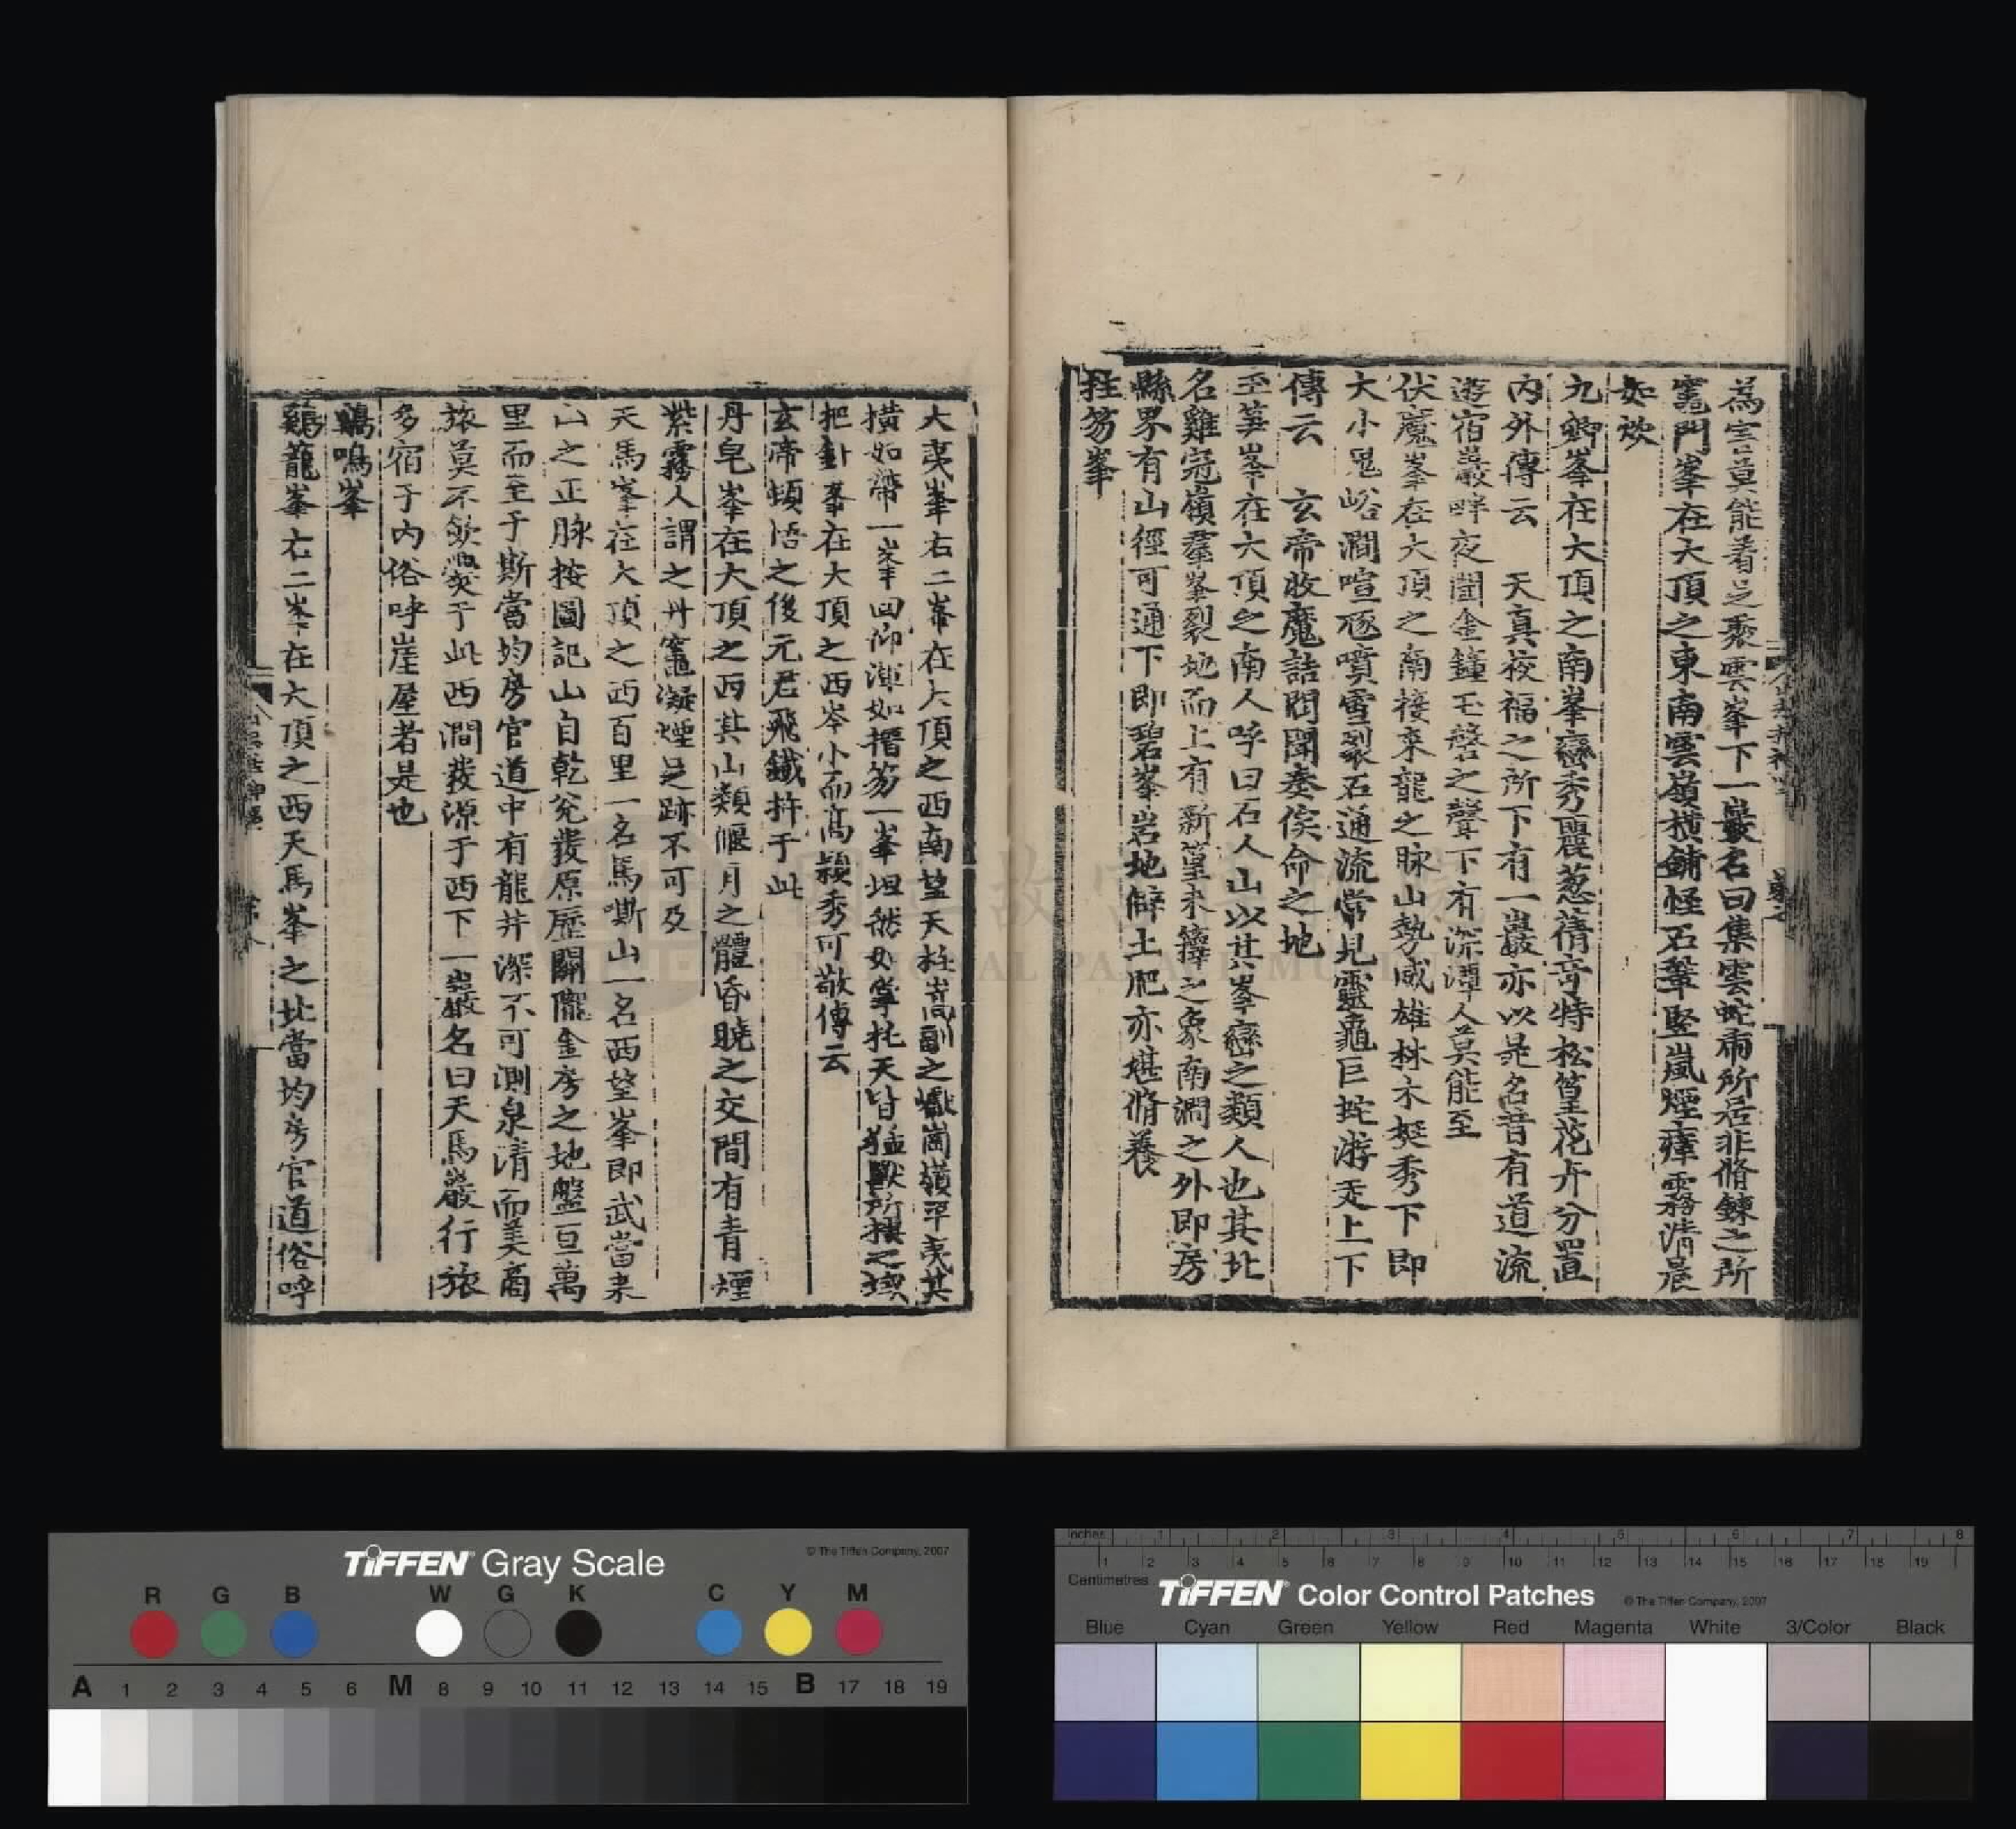 為宰莫能着足聚雲峯下一巖名曰集雲蛇虎所居非脩鍊之所
竈門峯在大頂之東南雲嶺橫鋪怪石鞏堅嵐煙瘴霧清晨
如炊
九卿峯在大頂之南峯巒秀麗葱蒨亭特松篁花卉分置
內外傳云 天真校福之所下有一巖亦以是名昔有道流
遊宿巖畔夜聞金鐘玉磬之聲下有深潭人莫能至
伏魔峯在大頂之南接來龍之脉山勢威雄林木挺秀下即
大小鬼峪澗喧豗噴雪裂石通流常見靈龜巨蛇游走上下
傳云 玄帝收魔詰問聞奏俟命之地
玉笋峯在大頂之南人呼曰石人山以其峯巒之類人也其北
名雞冠嶺羣峯裂地而上有新篁未籜之象南澗之外即房
縣界有山徑可通下即碧峯岩地僻土肥亦堪脩養
拄笏峯
大夷峯右二峯在大頂之西南望天柱嵩副之巘崗嶺平夷其
橫如帶一峯回仰渾如搢笏一峯坦然如掌托天皆猛獸所攫之境
把針峯在大頂之西岑小而高穎秀可敬傳云
玄帝頓悟之後元君飛鐵杵于此
丹皂峯在大頂之西其山類偃月之體昏曉之交間有青煙
紫霧人謂之丹竈凝煙足跡不可及
天馬峯在大頂之西百里一名馬嘶山一名西望峯即武當來
山之正脉按圖記山自乾兊發原歷關隴金房之地盤亘萬
里而至于斯當均房官道中有龍井深不可測泉清而美商
旅莫不飲𤅀于此西澗發源于西下一巖名曰天馬巖行旅
多宿于內俗呼崖屋者是也
鷄鳴峯
鷄籠峯右二峯在大頂之西天馬峯之北當均房官道俗呼
國立故宮博物院
NATIONAL PALACE MUSEUM
TIFFEN Gray Scale
© The Tiffen Company, 2007
R G B W G K C Y M
A 1 2 3 4 5 6 M 8 9 10 11 12 13 14 15 B 17 18 19
Inches 1 2 3 4 5 6 7 8
1 2 3 4 5 6 7 8 9 10 11 12 13 14 15 16 17 18 19
Centimetres
TIFFEN Color Control Patches
© The Tiffen Company, 2007
Blue Cyan Green Yellow Red Magenta White 3/Color Black